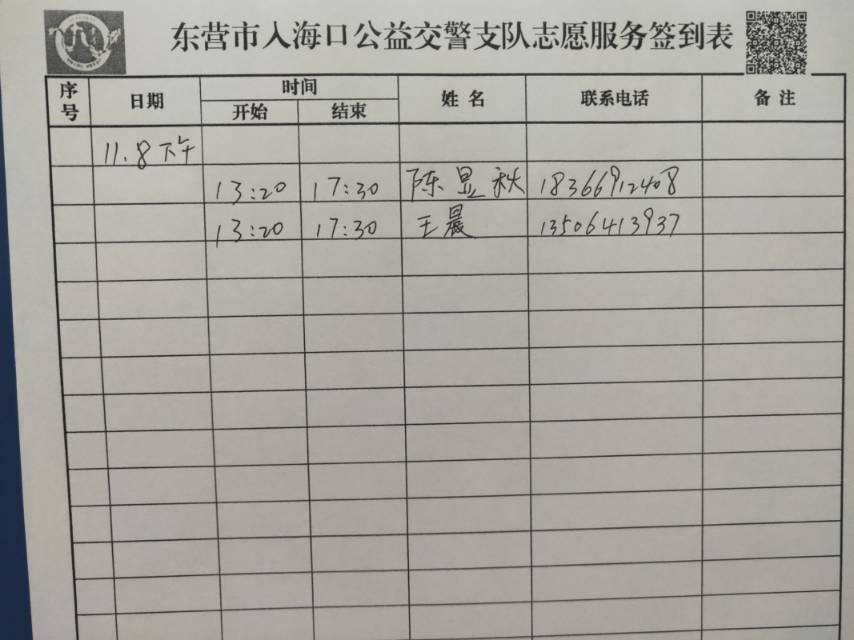 东营市入海口公益交警支队志愿服务签到表
序号 日期 时间 姓名 联系电话 备注
开始 结束
11.8下午
13:20 17:30 陈昱秋 18366912408
13:20 17:30 王晨 13506413937